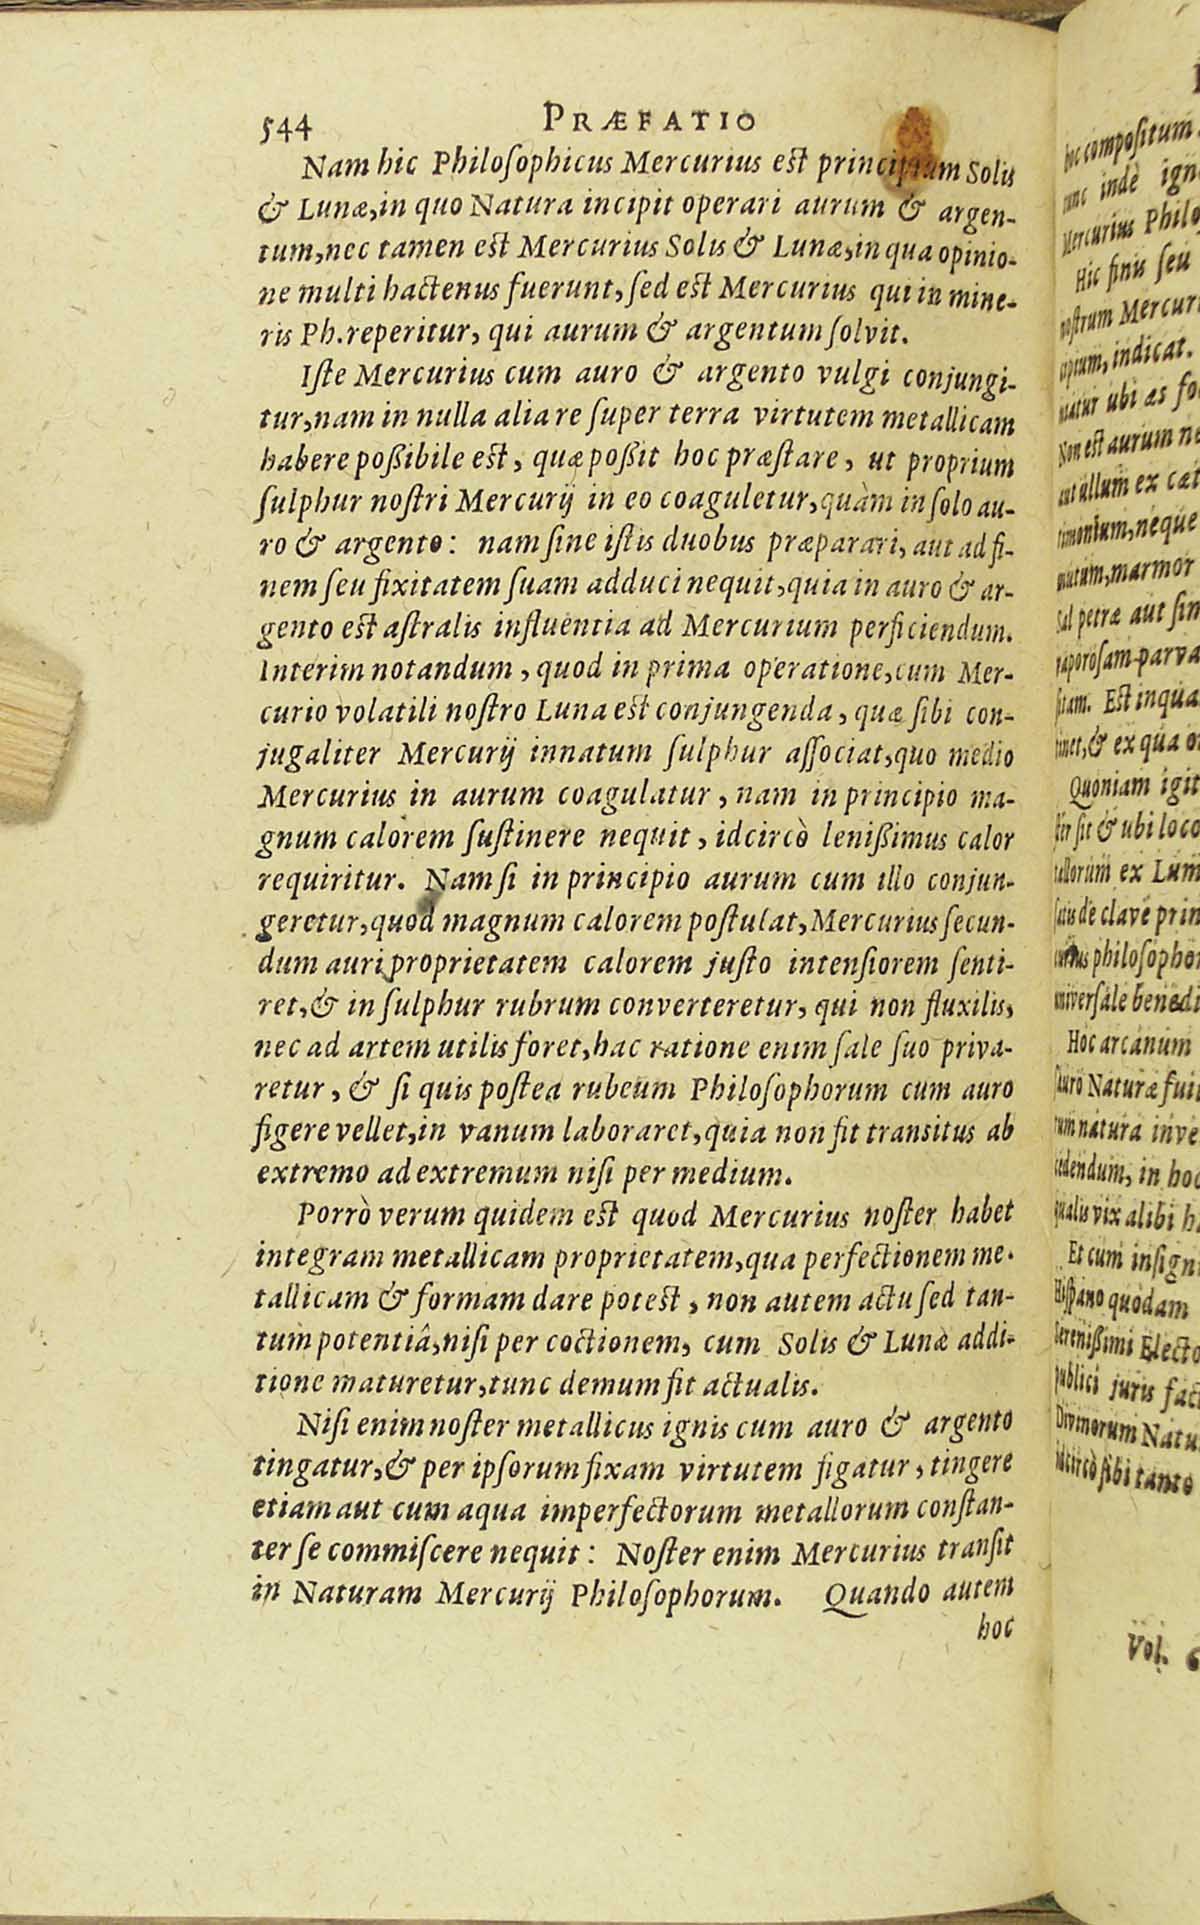 544 PRÆFATIO
Nam hic Philoſophicus Mercurius est principium Solis
& Lunæ, in quo Natura incipit operari aurum & argen-
tum, nec tamen est Mercurius Solis & Lunæ, in qua opinio-
ne multi hactenus fuerunt, ſed est Mercurius qui in mine-
ris Ph. reperitur, qui aurum & argentum ſolvit.
Iſte Mercurius cum auro & argento vulgi conjungi-
tur, nam in nulla alia re ſuper terra virtutem metallicam
habere poßibile est, quæ poßit hoc præſtare, ut proprium
ſulphur noſtri Mercurij in eo coaguletur, quàm in ſolo au-
ro & argento: nam ſine iſtis duobus præparari, aut ad fi-
nem ſeu fixitatem ſuam adduci nequit, quia in auro & ar-
gento est aſtralis influentia ad Mercurium perficiendum.
Interim notandum, quod in prima operatione, cum Mer-
curio volatili noſtro Luna est conjungenda, quæ ſibi con-
jugaliter Mercurij innatum ſulphur aſſociat, quo medio
Mercurius in aurum coagulatur, nam in principio ma-
gnum calorem ſuſtinere nequit, idcircò lenißimus calor
requiritur. Nam ſi in principio aurum cum illo conjun-
geretur, quod magnum calorem poſtulat, Mercurius ſecun-
dum auri proprietatem calorem juſto intenſiorem ſenti-
ret, & in ſulphur rubrum converteretur, qui non fluxilis,
nec ad artem utilis foret, hac ratione enim ſale ſuo priva-
retur, & ſi quis poſtea rubeum Philoſophorum cum auro
figere vellet, in vanum laboraret, quia non fit tranſitus ab
extremo ad extremum niſi per medium.
Porrò verum quidem est quod Mercurius noſter habet
integram metallicam proprietatem, qua perfectionem me-
tallicam & formam dare potest, non autem actu ſed tan-
tum potentiâ, niſi per coctionem, cum Solis & Lunæ addi-
tione maturetur, tunc demum fit actualis.
Niſi enim noſter metallicus ignis cum auro & argento
tingatur, & per ipſorum fixam virtutem figatur, tingere
etiam aut cum aqua imperfectorum metallorum conſtan-
ter ſe commiſcere nequit: Noſter enim Mercurius tranſit
in Naturam Mercurij Philoſophorum. Quando autem
hoc
hoc compoſitum
tunc indè
Mercurius
Hic finis ſeu
noſtrum
indicat.
ubi as
Non est aurum
aut ullum ex
neque
marmor
Sal petræ aut
parva
Est
& ex qua
Quoniam
ſit & ubi loco
ex
de clave
univerſale
Hoc arcanum
Naturæ
natura
in hoc
qualis vix alibi
Et cum
quodam
publici juris
Divinorum
idcircò ſibi tanto
Vol.